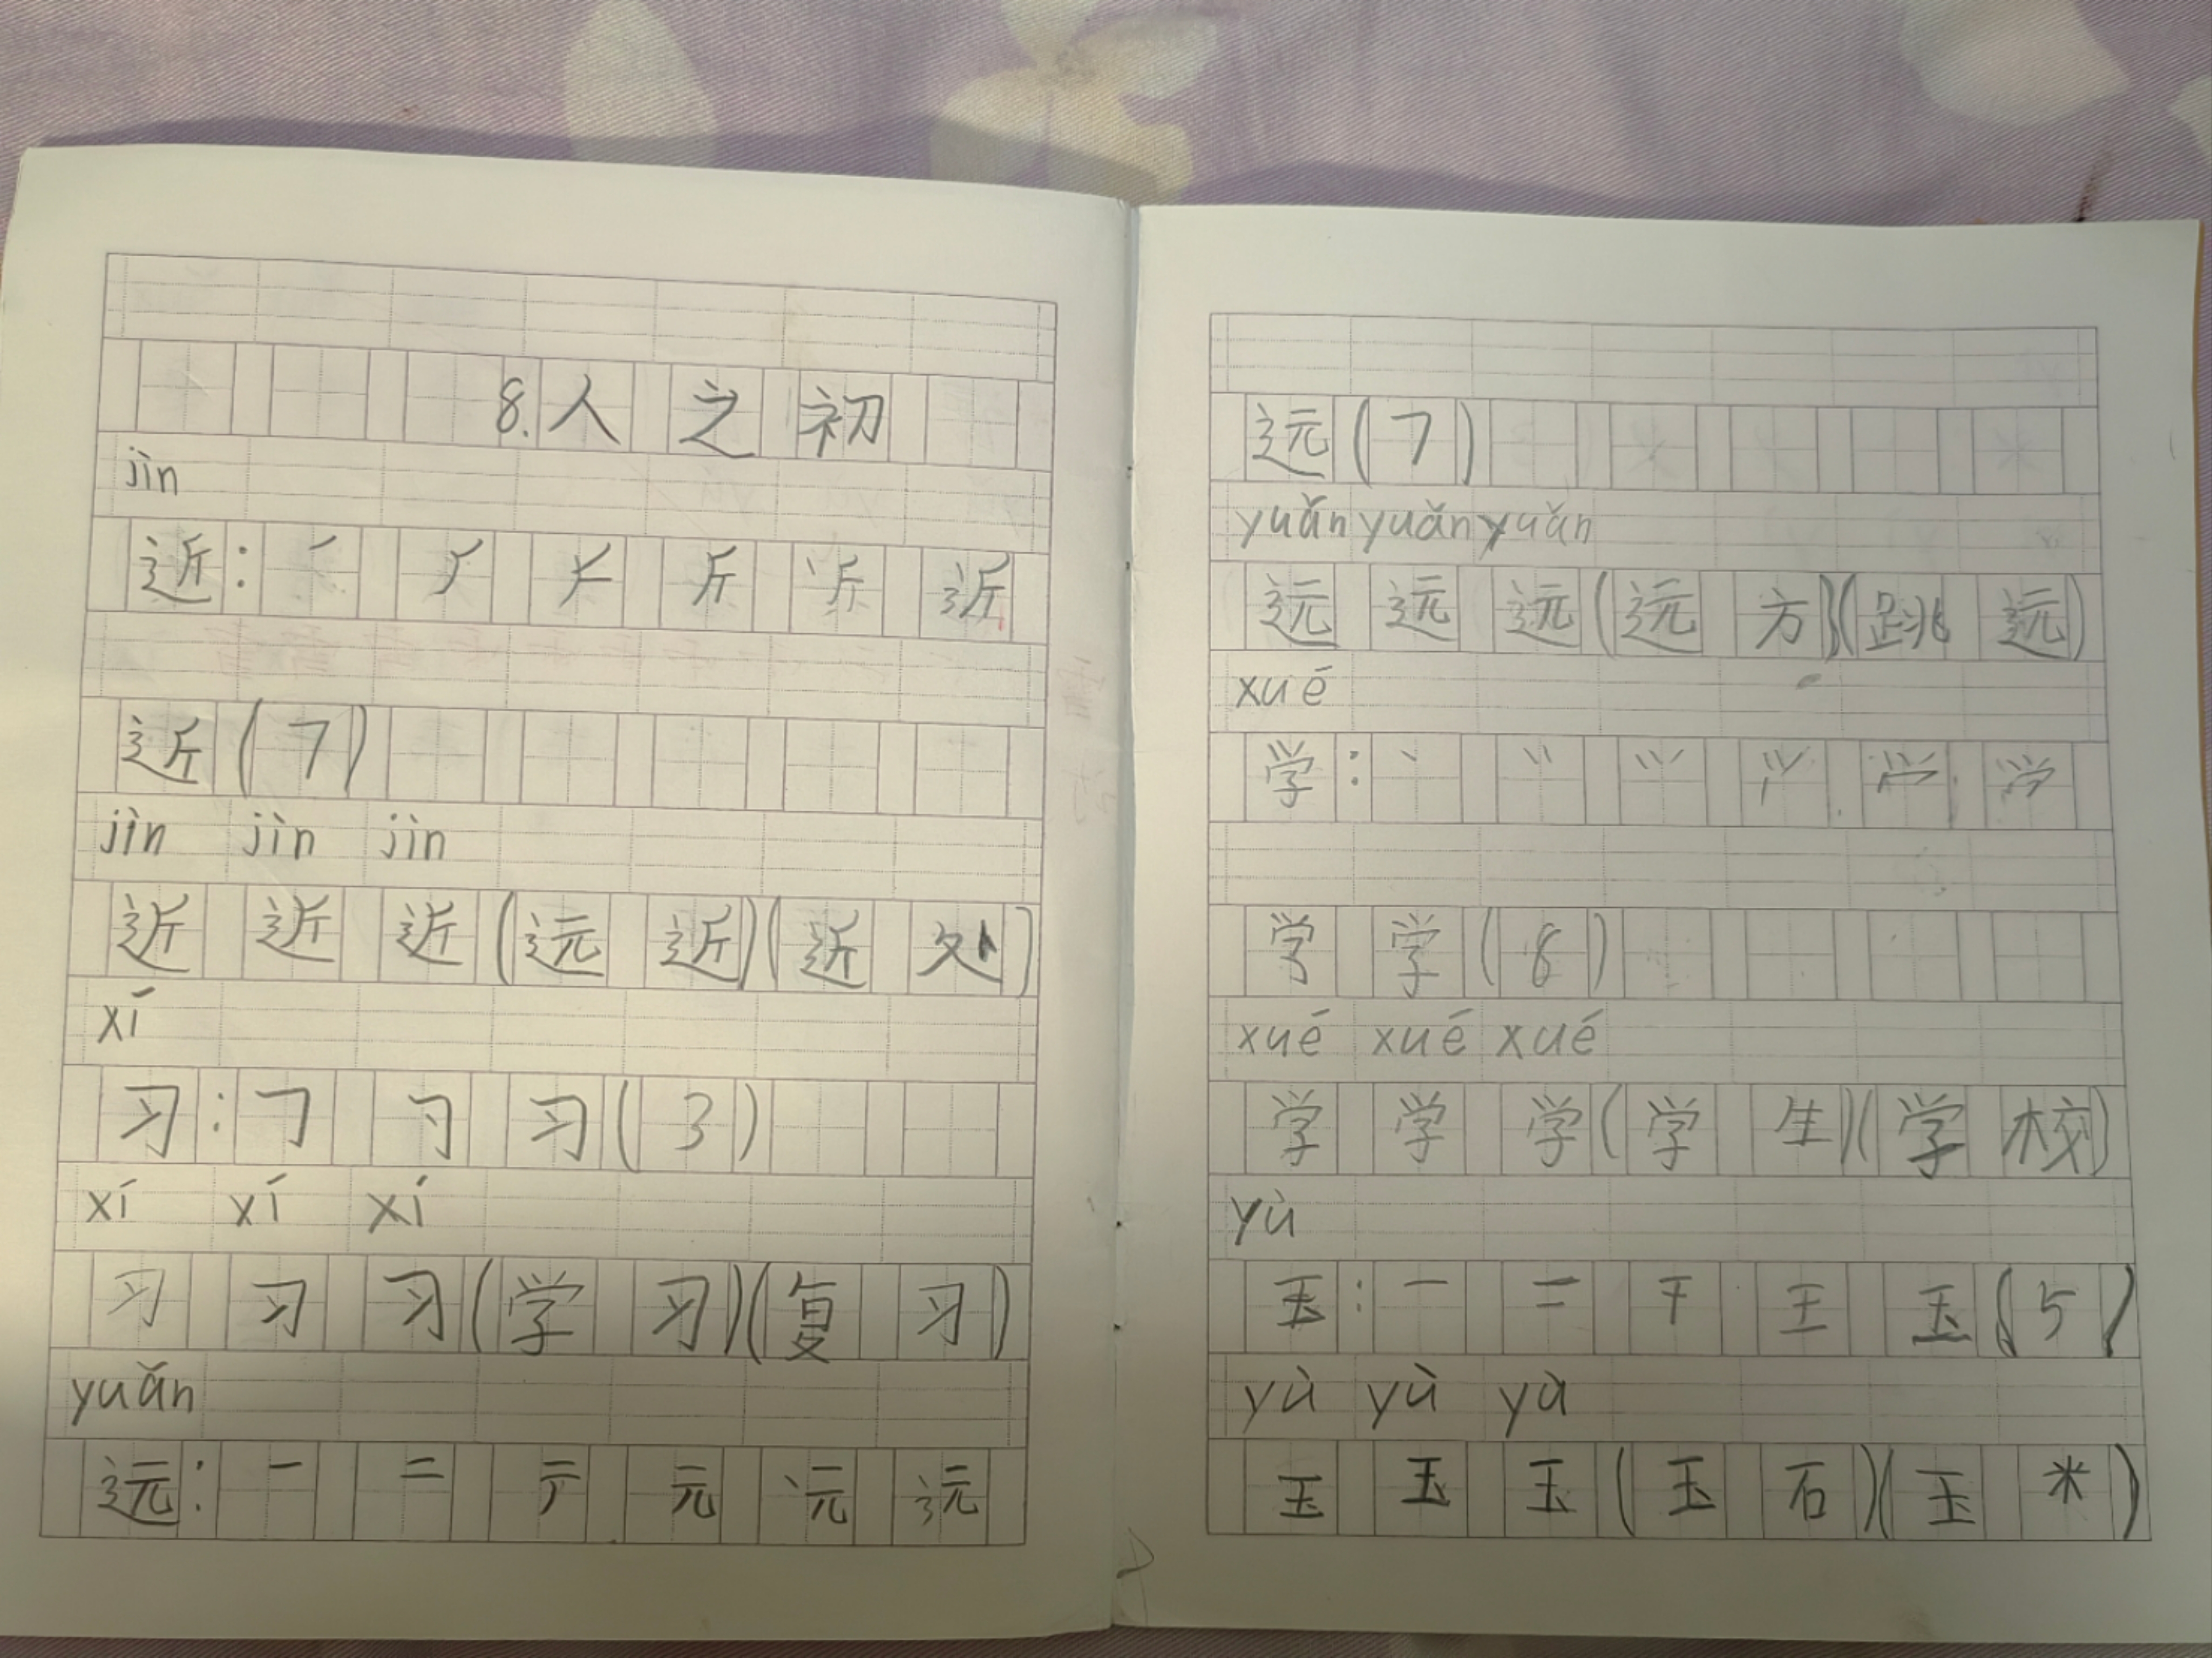 8.人之初
jìn
近:㇒ 𠂆 斤 斤 近
近(7)
jìn jìn jìn
近近近(远近)(近处)
xí
习:𠃌 习(3)
xí xí xí
习习习(学习)(复习)
yuǎn
远:一 二 元
远(7)
yuǎn yuǎn yuǎn
远远远(远方)(跳远)
xué
学:丶
学(8)
xué xué xué
学学学(学生)(学校)
yù
玉:一 二 干 王 玉(5)
yù yù yù
玉玉玉(玉石)(玉米)